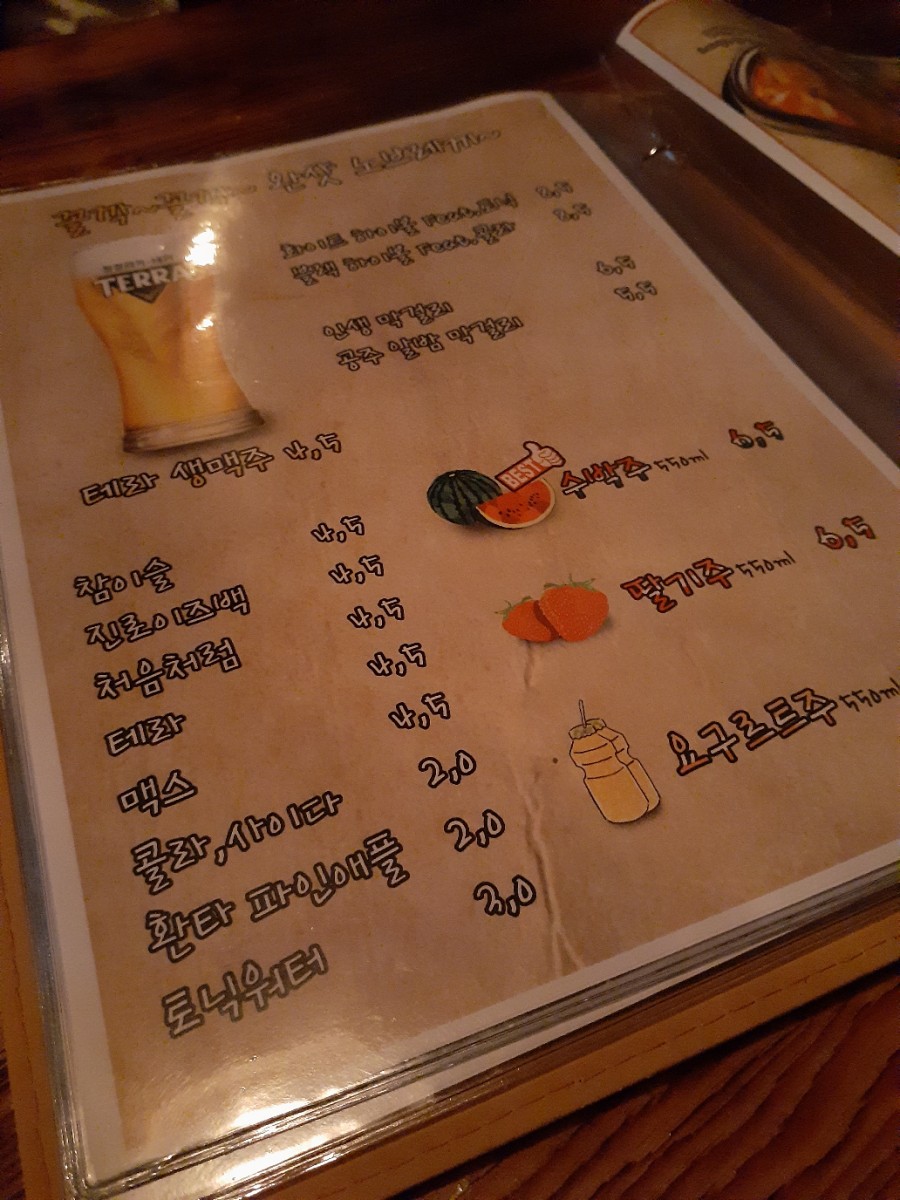 꿀꺽~꿀꺽~ 원샷 노브레끼~
청정라거-테라
TERRA
화이트 하이볼 Feat.토닉
블랙 하이볼 Feat.콜라 3,5
인생 막걸리 6,5
공주 알밤 막걸리 5,5
테라 생맥주 4,5
참이슬 4,5
진로이즈백 4,5
처음처럼 4,5
테라 4,5
맥스 4,5
콜라,사이다 2,0
환타 파인애플 2,0
토닉워터 2,0
BEST 수박주 550ml 6,5
딸기주 550ml 6,5
요구르트주 550ml